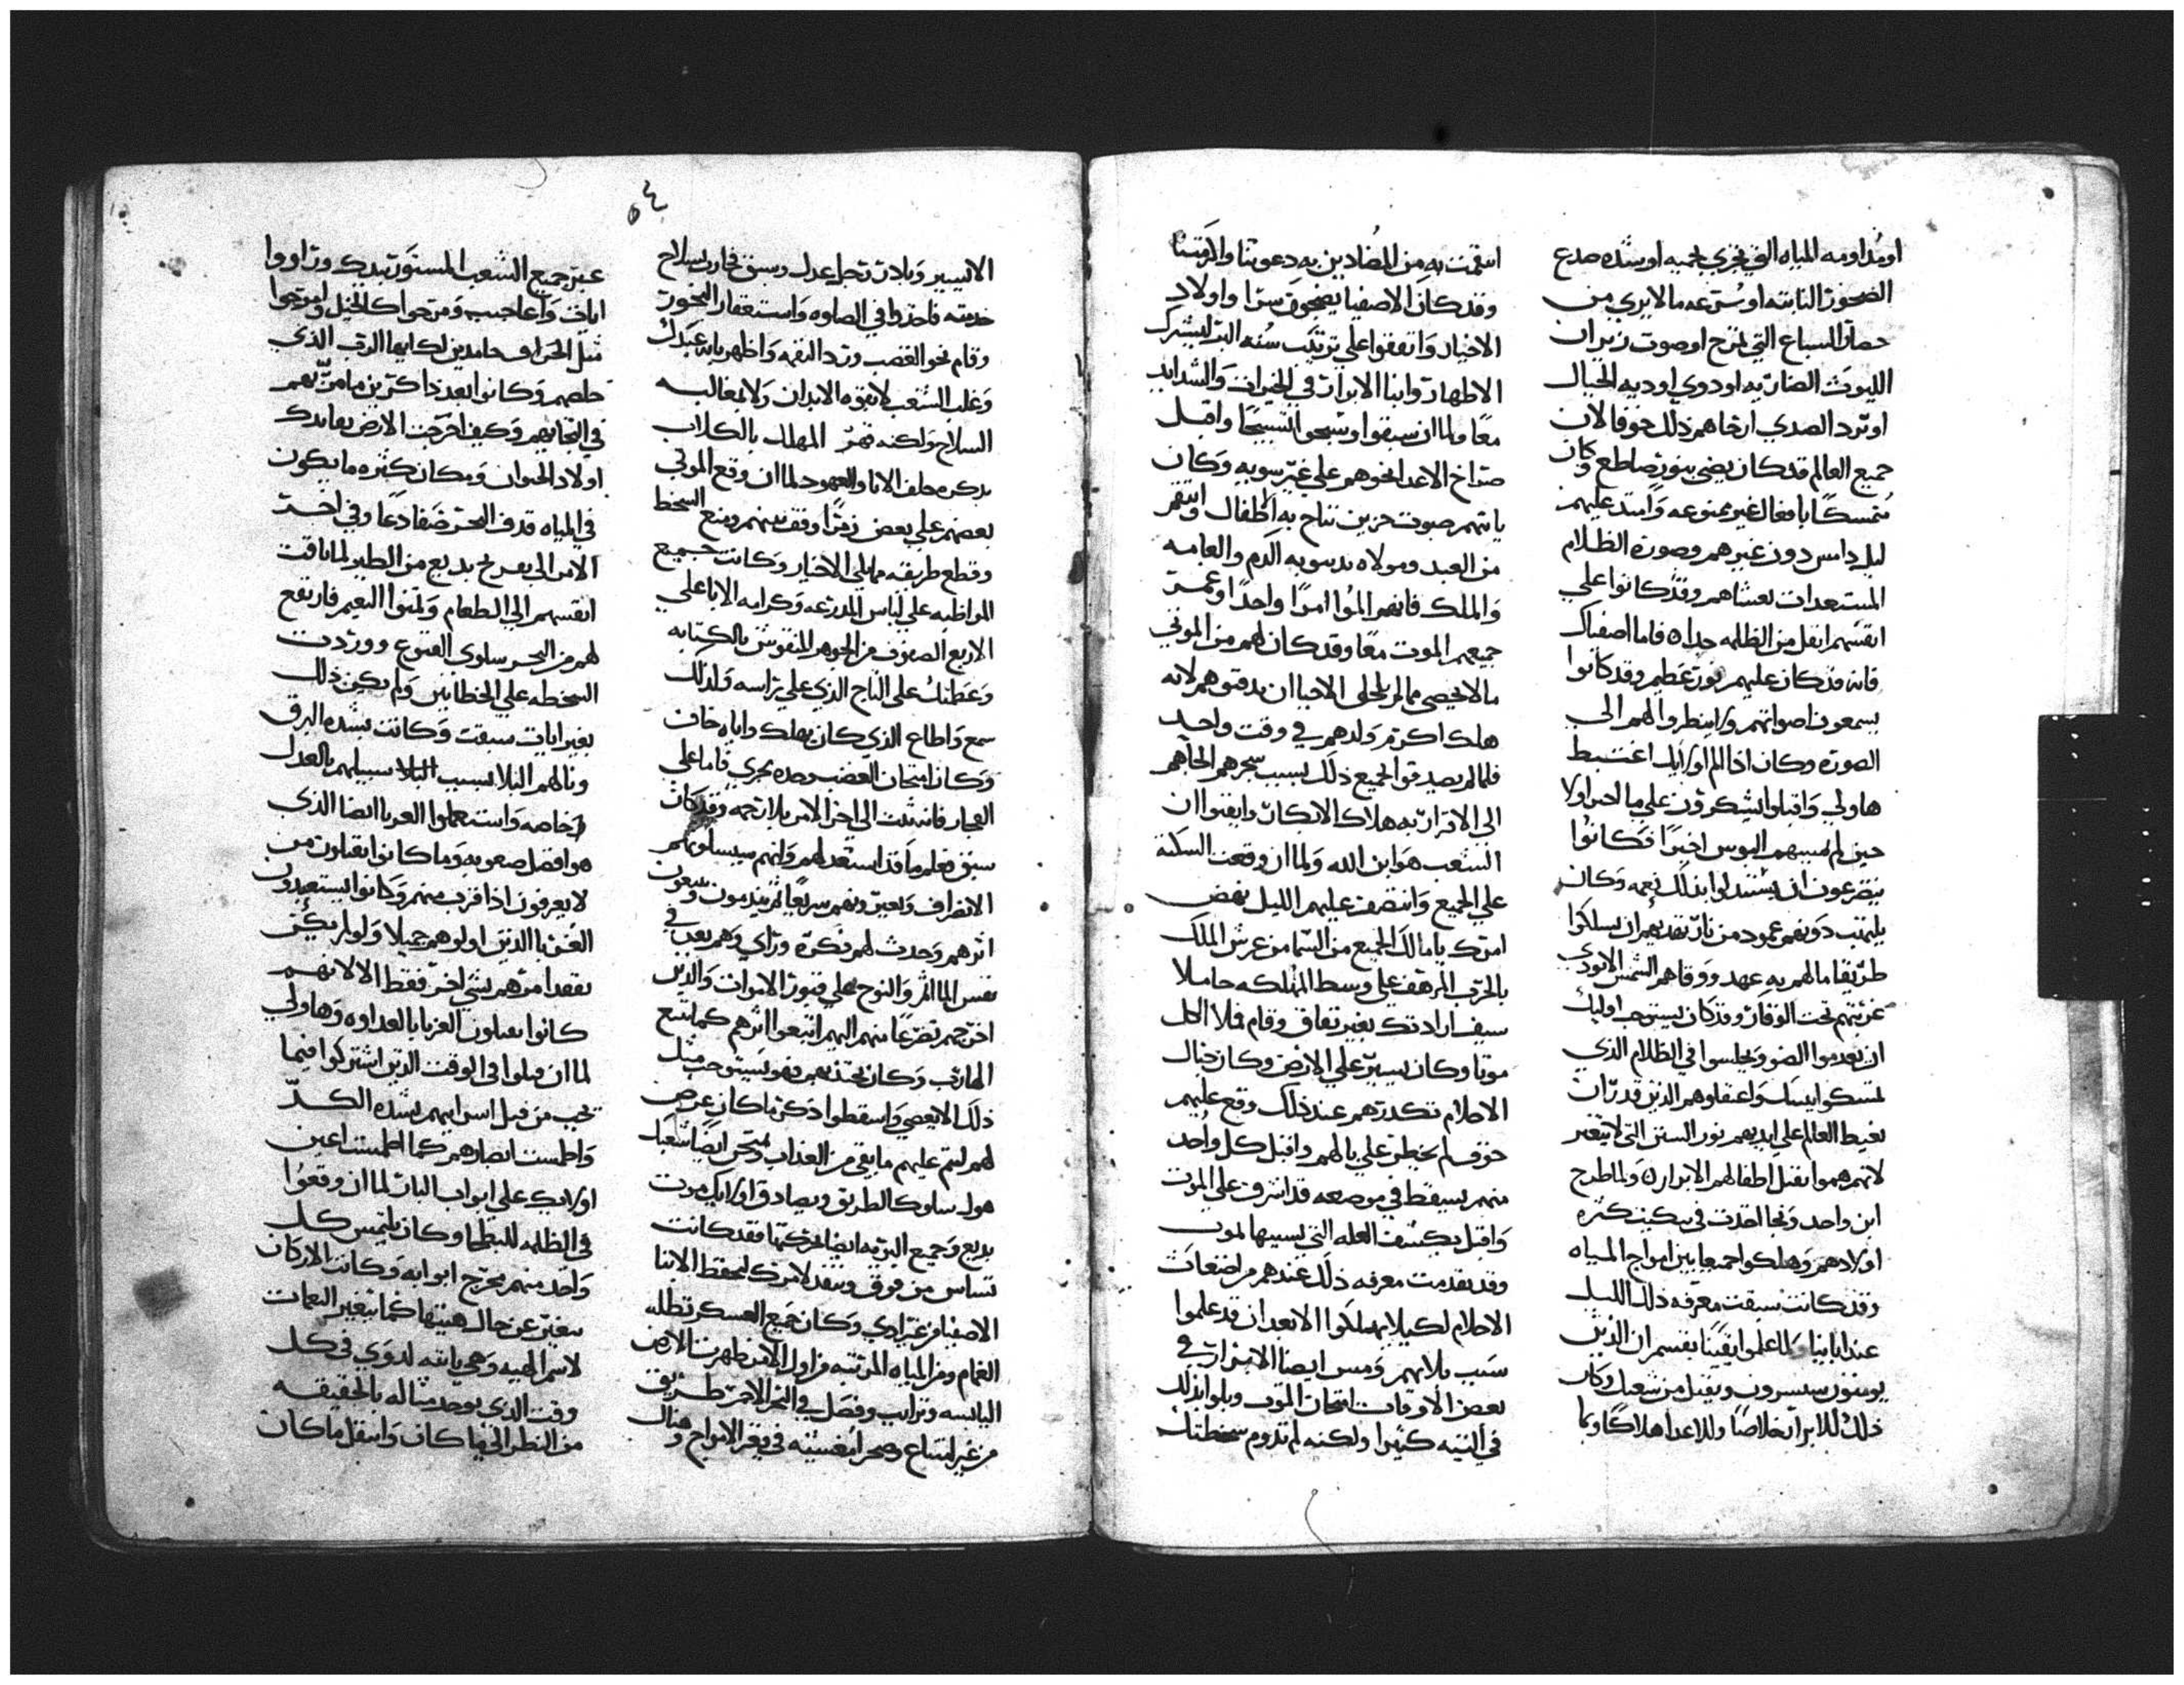 او مداومه المياه التي تجري بحميه او شده صدع
الصخور الثابته او سرعه ما لا يري من
حضار السباع التي تمرح او صوت زيران
الليوث الضاريه او دوي اوديه الجبال
او ترد الصدي ارخاهم ذلك خوفا لان
جميع العالم قد كان يضي بنور ساطع وكان
متمسكا بافعال غير ممنوعه وامتد عليهم
ليل دامس دون غيرهم وصوره الظلام
المستعدات تغشاهم وقد كانوا علي
انفسهم اثقل من الظلمه جدا فاما اصفياك
فانه قد كان عليهم نور عظيم وقد كانوا
يسمعون اصواتهم ولم ينظروا لهم الي
الصوره وكان اذا الم اوليك اغتبط
هاولي واقبلوا يشكرون علي ما لحق اولا
حين لم يصيبهم البوس اخيرا فكانوا
يتضرعون ان يستبدلوا بذلك نعمه وكان
يلتهب دونهم عمود من نار تقديهم ان يسلكوا
طريقا ما لهم به عهد ووقاهم الشمس لا توذي
غربتهم تحت الوقار وقد كان يستوجب اوليك
ان يعدموا الضو ويجلسوا في الظلام الذي
تمسكوا بنسلك واعتقلوهم الذين قد ران
يعيط العالم علي ايديهم نور السنن التي لا تتغير
لانهم هموا بقتل اطفالهم الابرار ولما طرح
ابن واحد ونجا اخذت في تبكيت كثره
اولادهم وهلكوا جميعا بين امواج المياه
وقد كانت سبقت معرفه ذلك الليل
عند ابائنا ولما علموا يقينا بقسم ان الذين
يومنون سيسرون ويقبل من شعبك وكان
ذلك للابرار خلاصا وللاعدا هلاكا وبما
انتقمت به من المضادين به دعوتنا واكرمتنا
وقد كان الاصفيا يضحون سرا واولاد
الاخيار واتفقوا علي ترتيب سنه البر ليشترك
الاطهار وابنا الابرار في الخيرات والشدايد
معا ولما ان سبقوا وسبحوا تسبيحا واقبل
صراخ الاعدا نحوهم علي غير سويه وكان
ياتيهم صوت حزين تناح به اطفال وانتقم
من العبد ومولاه بدينونه الدم والعامه
والملك فانهم الموا امرا واحدا وعمر
جميعهم الموت معا وقد كان لهم من الموتي
ما لا يحصي مما لم يلحق الاحيا ان يدفنوهم لانه
هلك اكرم ولدهم في وقت واحد
فلما لم يصدقوا الجميع ذلك بسبب سحرهم الجاهم
الي الاقرار به هلاك الابكار وايقنوا ان
الشعب هو ابن الله ولما ان وقعت السكته
علي الجميع وانتصف عليهم الليل نهض
امرك يا مالك الجميع من السما من عرش الملك
بالحرب المرهف علي وسط المهلكه حاملا
سيف ارادتك بغير نفاق وقام فملا الكل
موتا وكان يسير علي الارض وكان خيال
الاحلام تكدرهم عند ذلك وقع عليهم
خوف لم يخطر علي بالهم واقبل كل واحد
منهم يسقط في موضعه قد اشرف علي الموت
واقبل يكشف العله التي بسببها يموت
وقد تقدمت معرفه ذلك عندهم من اضغاث
الاحلام لكيلا يهلكوا الا بعد ان قد علموا
سبب بلاهم ومس ايضا الابرار في
بعض الاوقات امتحان الموت وبلوا بذلك
في التيه كثيرا ولكنه لم تدوم سخطتك
٥٤
الا يسير وبادر رجل عدل وسبق فحارب بسلاح
خدمته فاخذوا في الصلوه واستغفار البخور
وقام نحو الغضب ورد النقمه واظهر بانه عبدك
وغلب الشعب لا بقوه الابدان ولا بمغالبه
السلاح ولكنه قهر المهلك بالكلام
بذكره حلف الابا والعهود لما ان وقع الموتي
بعضهم علي بعض زمرا وقف بينهم ومنع السخط
وقطع طريقه مما يلي الاخيار وكانت جميع
المواظبه علي لباس المدرعه وكرامه الابا علي
الاربع الصفوف من الجوهر المنقوش بالكتابه
وعظمتك علي التاج الذي علي راسه ولذلك
سمع واطاع الذي كان يهلك واياه خاف
وكان امتحان الغضب وحده يجزي فاما علي
الفجار فانه ثبت الي اخر الامر بلا رحمه وقد كان
سبق فعلم ما قد استعد لهم وانهم سيسلونهم
الانصراف ويعيرونهم سريعا ثم يندمون ويتبعون
اثرهم وحدث لهم فكره وراي وهم بعد في
نفس الماتم والنوح علي قبور الاموات والذين
اخرجهم تضرعا منهم اليهم اتبعوا اثرهم كما يتبع
الهارب وكان يجتذبهم فهو يستوجب مثل
ذلك الانقضي واسقطوا ذكر ما كان عرض
لهم ليتم عليهم ما بقي من العذاب ويمتحن ايضا شعبك
هول سلوك الطريق ويصادف اوليك موت
بديع وجميع البريه ايضا تحركها فقد كانت
تساس من فوق وينفد لامرك لتحفظ الابنا
الاصفيا من غير اذي وكان جميع العسكر تظله
الغمام ومن المياه المرتبه من اول الامر ظهرت الارض
اليابسه وتراب وفصل في البحر الاحمر طريق
من غير امتناع وصحرا معشبه في قعر الامواج وهناك
عبر جميع الشعب المستور بيدك وراووا
ايات واعاجيب ومرحوا كالخيل وابتهجوا
مثل الخراف حامدين لك ايها الرب الذي
خلصهم وكانوا بعد ذاكرين ما مر بهم
في التجايهم وكيف اخرجت الارض بعايدك
اولاد الحيوان ومكان كثره ما يكون
في المياه قذف البحر ضفادعا وفي اخر
الامر الي بفريخ بديع من الطير لما تاقت
انفسهم الي الطعام وتمنوا النعيم فارتفع
لهم من البحر سلوي القنوع ووردت
السخطه علي الخطايين ولم يكن ذلك
بغير ايات سبقت وكانت بشده البرق
ونالهم البلا بسبب البلا سبيلهم بالعدل
وخاصه واستعملوا الغربا ايضا الذي
هو افضل صعوبه وما كانوا يقبلون من
لا يعرفون اذا قرب منهم وكانوا يستعبدون
الغربا الذين اولوهم جميلا ولو لم يكن
يفقد امرهم بشي اخر فقط الا لانهم
كانوا يقبلون الغربا بالعداوه وهاولي
لما ان قبلوا في الوقت الذين اشتركوا فيما
يجب من قبل اسرايهم بشده الكد
واطمست ابصارهم كما اطمست اعين
اوليك علي ابواب البار لما ان وقعوا
في الظلمه للبطحا وكان يلتمس كل
واحد منهم مخرج ابوابه وكانت الاركان
تتغير عن حال هيتها كما تتغير النغمات
لاسم الهيبه وهي باقيه لدوي في كل
وقت الذي يوجد مثاله بالحقيقه
من النظر الي ما كان وانتقل ما كان